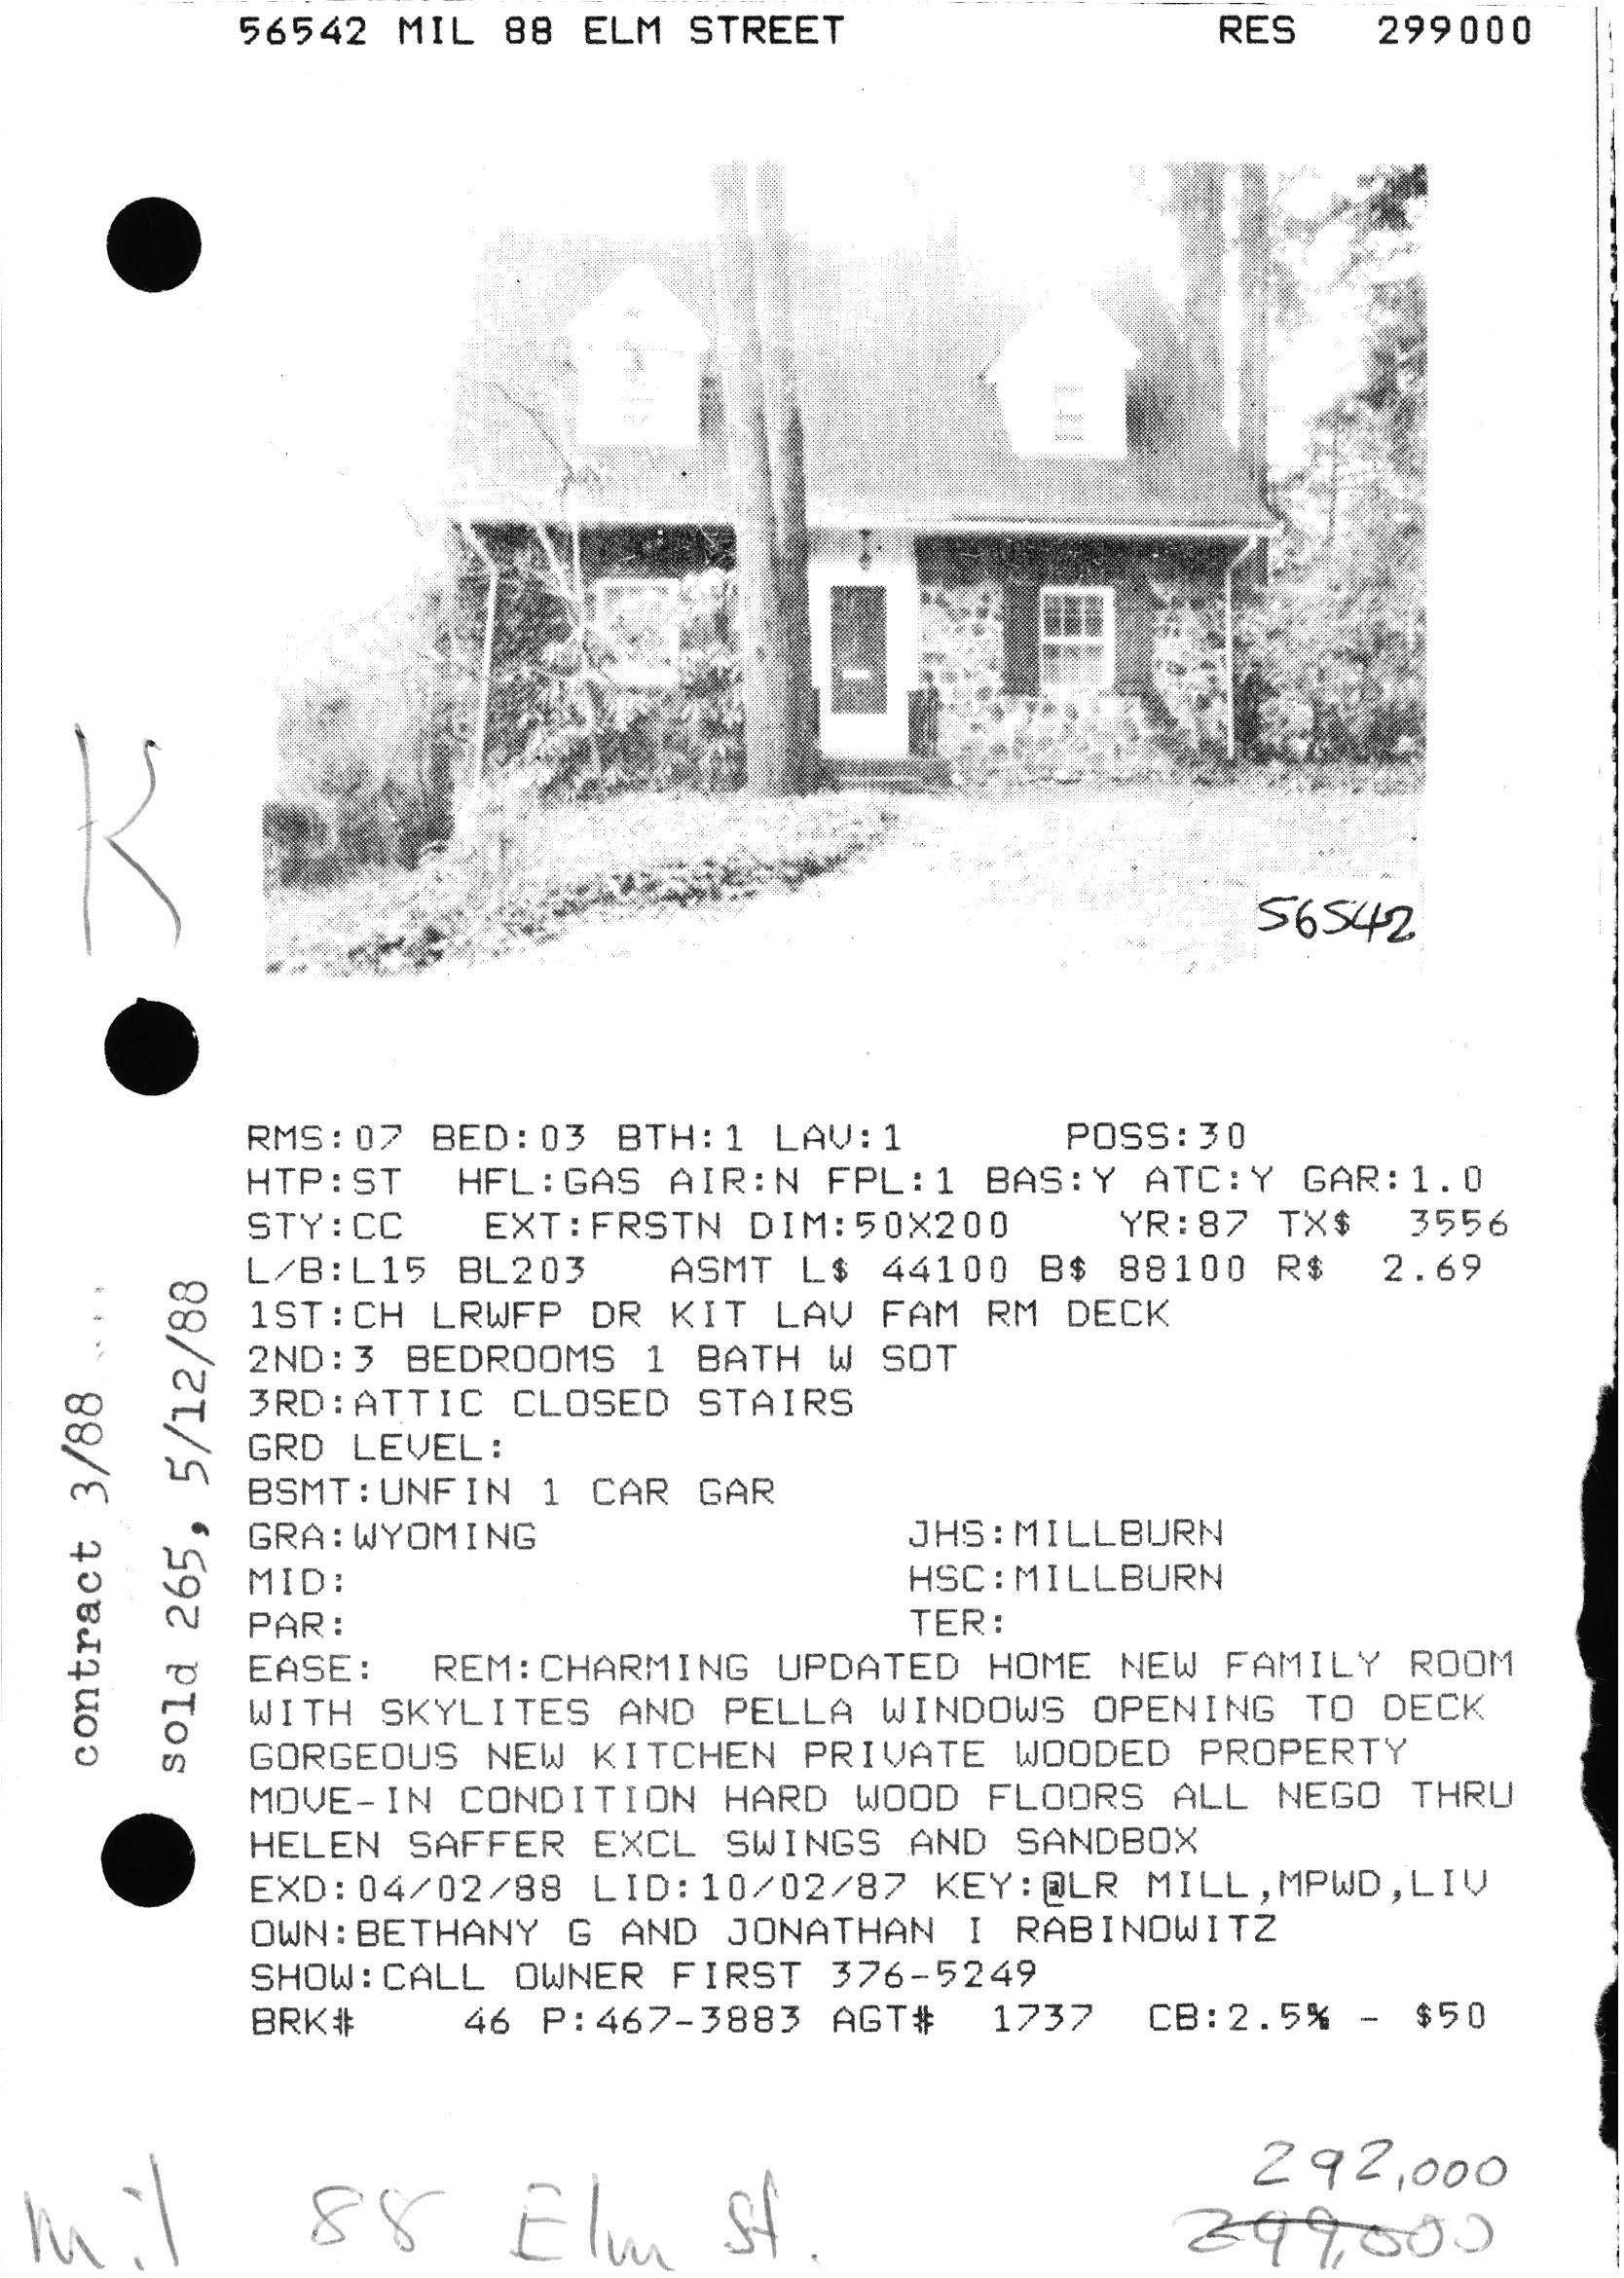 56542 MIL 88 ELM STREET RES 299000
56542
K
RMS:07 BED:03 BTH:1 LAV:1 POSS:30
HTP:ST HFL:GAS AIR:N FPL:1 BAS:Y ATC:Y GAR:1.0
STY:CC EXT:FRSTN DIM:50X200 YR:87 TX$ 3556
L/B:L15 BL203 ASMT L$ 44100 B$ 88100 R$ 2.69
1ST:CH LRWFP DR KIT LAV FAM RM DECK
2ND:3 BEDROOMS 1 BATH W SOT
3RD:ATTIC CLOSED STAIRS
GRD LEVEL:
BSMT:UNFIN 1 CAR GAR
GRA:WYOMING JHS:MILLBURN
MID: HSC:MILLBURN
PAR: TER:
EASE: REM:CHARMING UPDATED HOME NEW FAMILY ROOM
WITH SKYLITES AND PELLA WINDOWS OPENING TO DECK
GORGEOUS NEW KITCHEN PRIVATE WOODED PROPERTY
MOVE-IN CONDITION HARD WOOD FLOORS ALL NEGO THRU
HELEN SAFFER EXCL SWINGS AND SANDBOX
EXD:04/02/88 LID:10/02/87 KEY:@LR MILL,MPWD,LIV
OWN:BETHANY G AND JONATHAN I RABINOWITZ
SHOW:CALL OWNER FIRST 376-5249
BRK# 46 P:467-3883 AGT# 1737 CB:2.5% - $50
contract 3/88
sold 265, 5/12/88
292,000
299,000
Mil 88 Elm St.